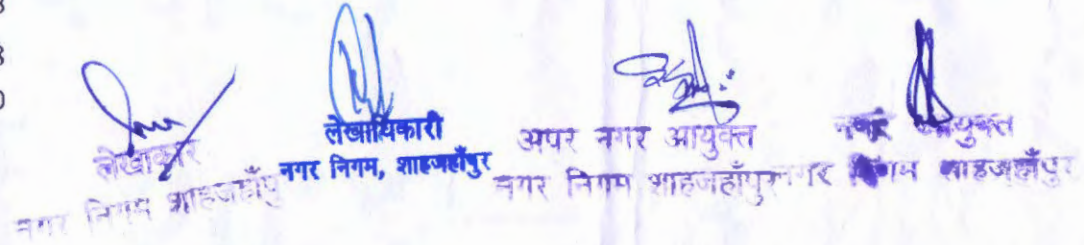 3
3
0
लेखाकार
नगर निगम शाहजहाँपु
लेखाधिकारी
नगर निगम, शाहजहाँपुर
अपर नगर आयुक्त
नगर निगम शाहजहाँपुर
नगर आयुक्त
नगर निगम शाहजहाँपुर